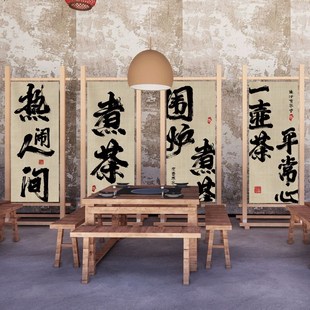 热闹人间
煮茶
围炉煮茶
一壶茶
平常心